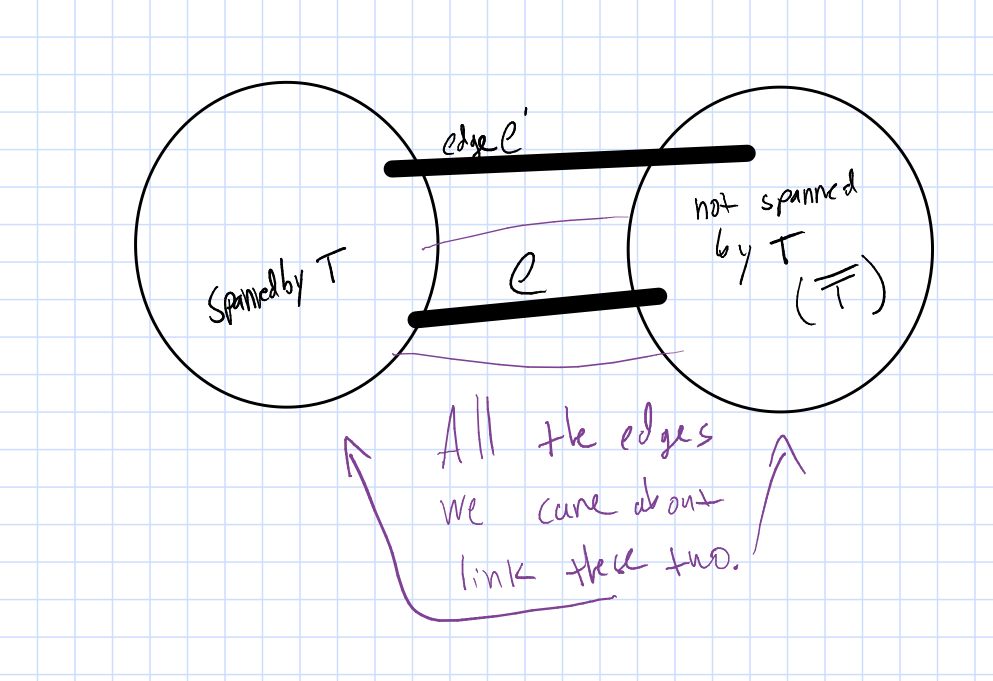 edge e'
Spanned by T
e
not spanned
by T
(T̿)
All the edges
we care about
link these two.